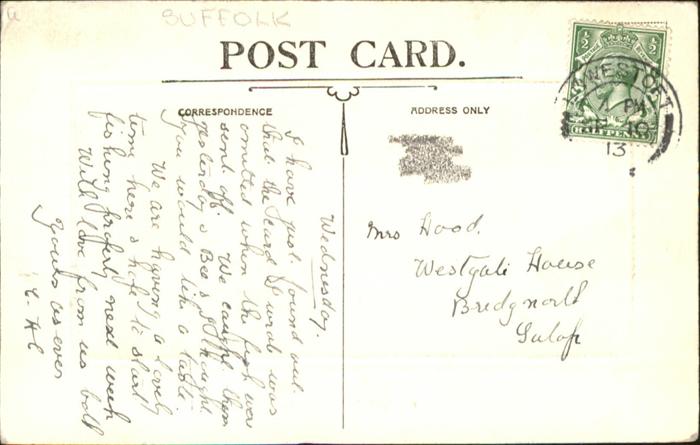 SUFFOLK
POST CARD.
CORRESPONDENCE
ADDRESS ONLY
Wednesday.
I have just found out
that the card I wrote was
omitted when the fish were
sent off. We caught them
yesterday & Bee & I thought
you would like a taste
We are having a lovely
time here & hope to start
fishing properly next week
With love from us both
Yours as ever
Mrs Hood.
Westgate House
Bridgnorth
Salop
½ ½
HALFPENNY
LOWESTOFT
7 PM
SP 10
13